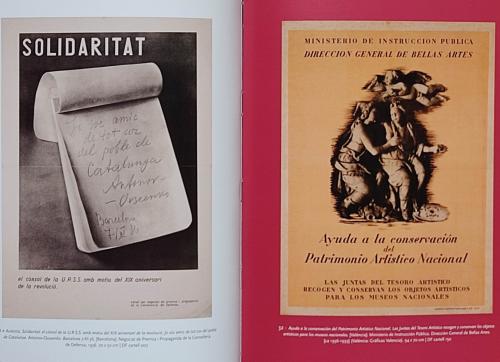 SOLIDARITAT
Jo soc amic
de tot cor
del poble de
Catalunya
Antonov-
Ovseenko
Barcelona
el cònsol de la U.R.S.S. amb motiu del XIX aniversari
de la revolució.
MINISTERIO DE INSTRUCCION PUBLICA
DIRECCION GENERAL DE BELLAS ARTES
Ayuda a la conservación
del
Patrimonio Artístico Nacional
LAS JUNTAS DEL TESORO ARTISTICO
RECOGEN Y CONSERVAN LOS OBJETOS ARTISTICOS
PARA LOS MUSEOS NACIONALES
52 · Ayuda a la conservación del Patrimonio Artístico Nacional. Las Juntas del Tesoro Artístico recogen y conservan los objetos
artísticos para los museos nacionales. [València]: Ministerio de Instrucción Pública. Dirección General de Bellas Artes
[ca 1936-1939] (València: Gráficas Valencia). 94 x 70 cm | DF cartell 150